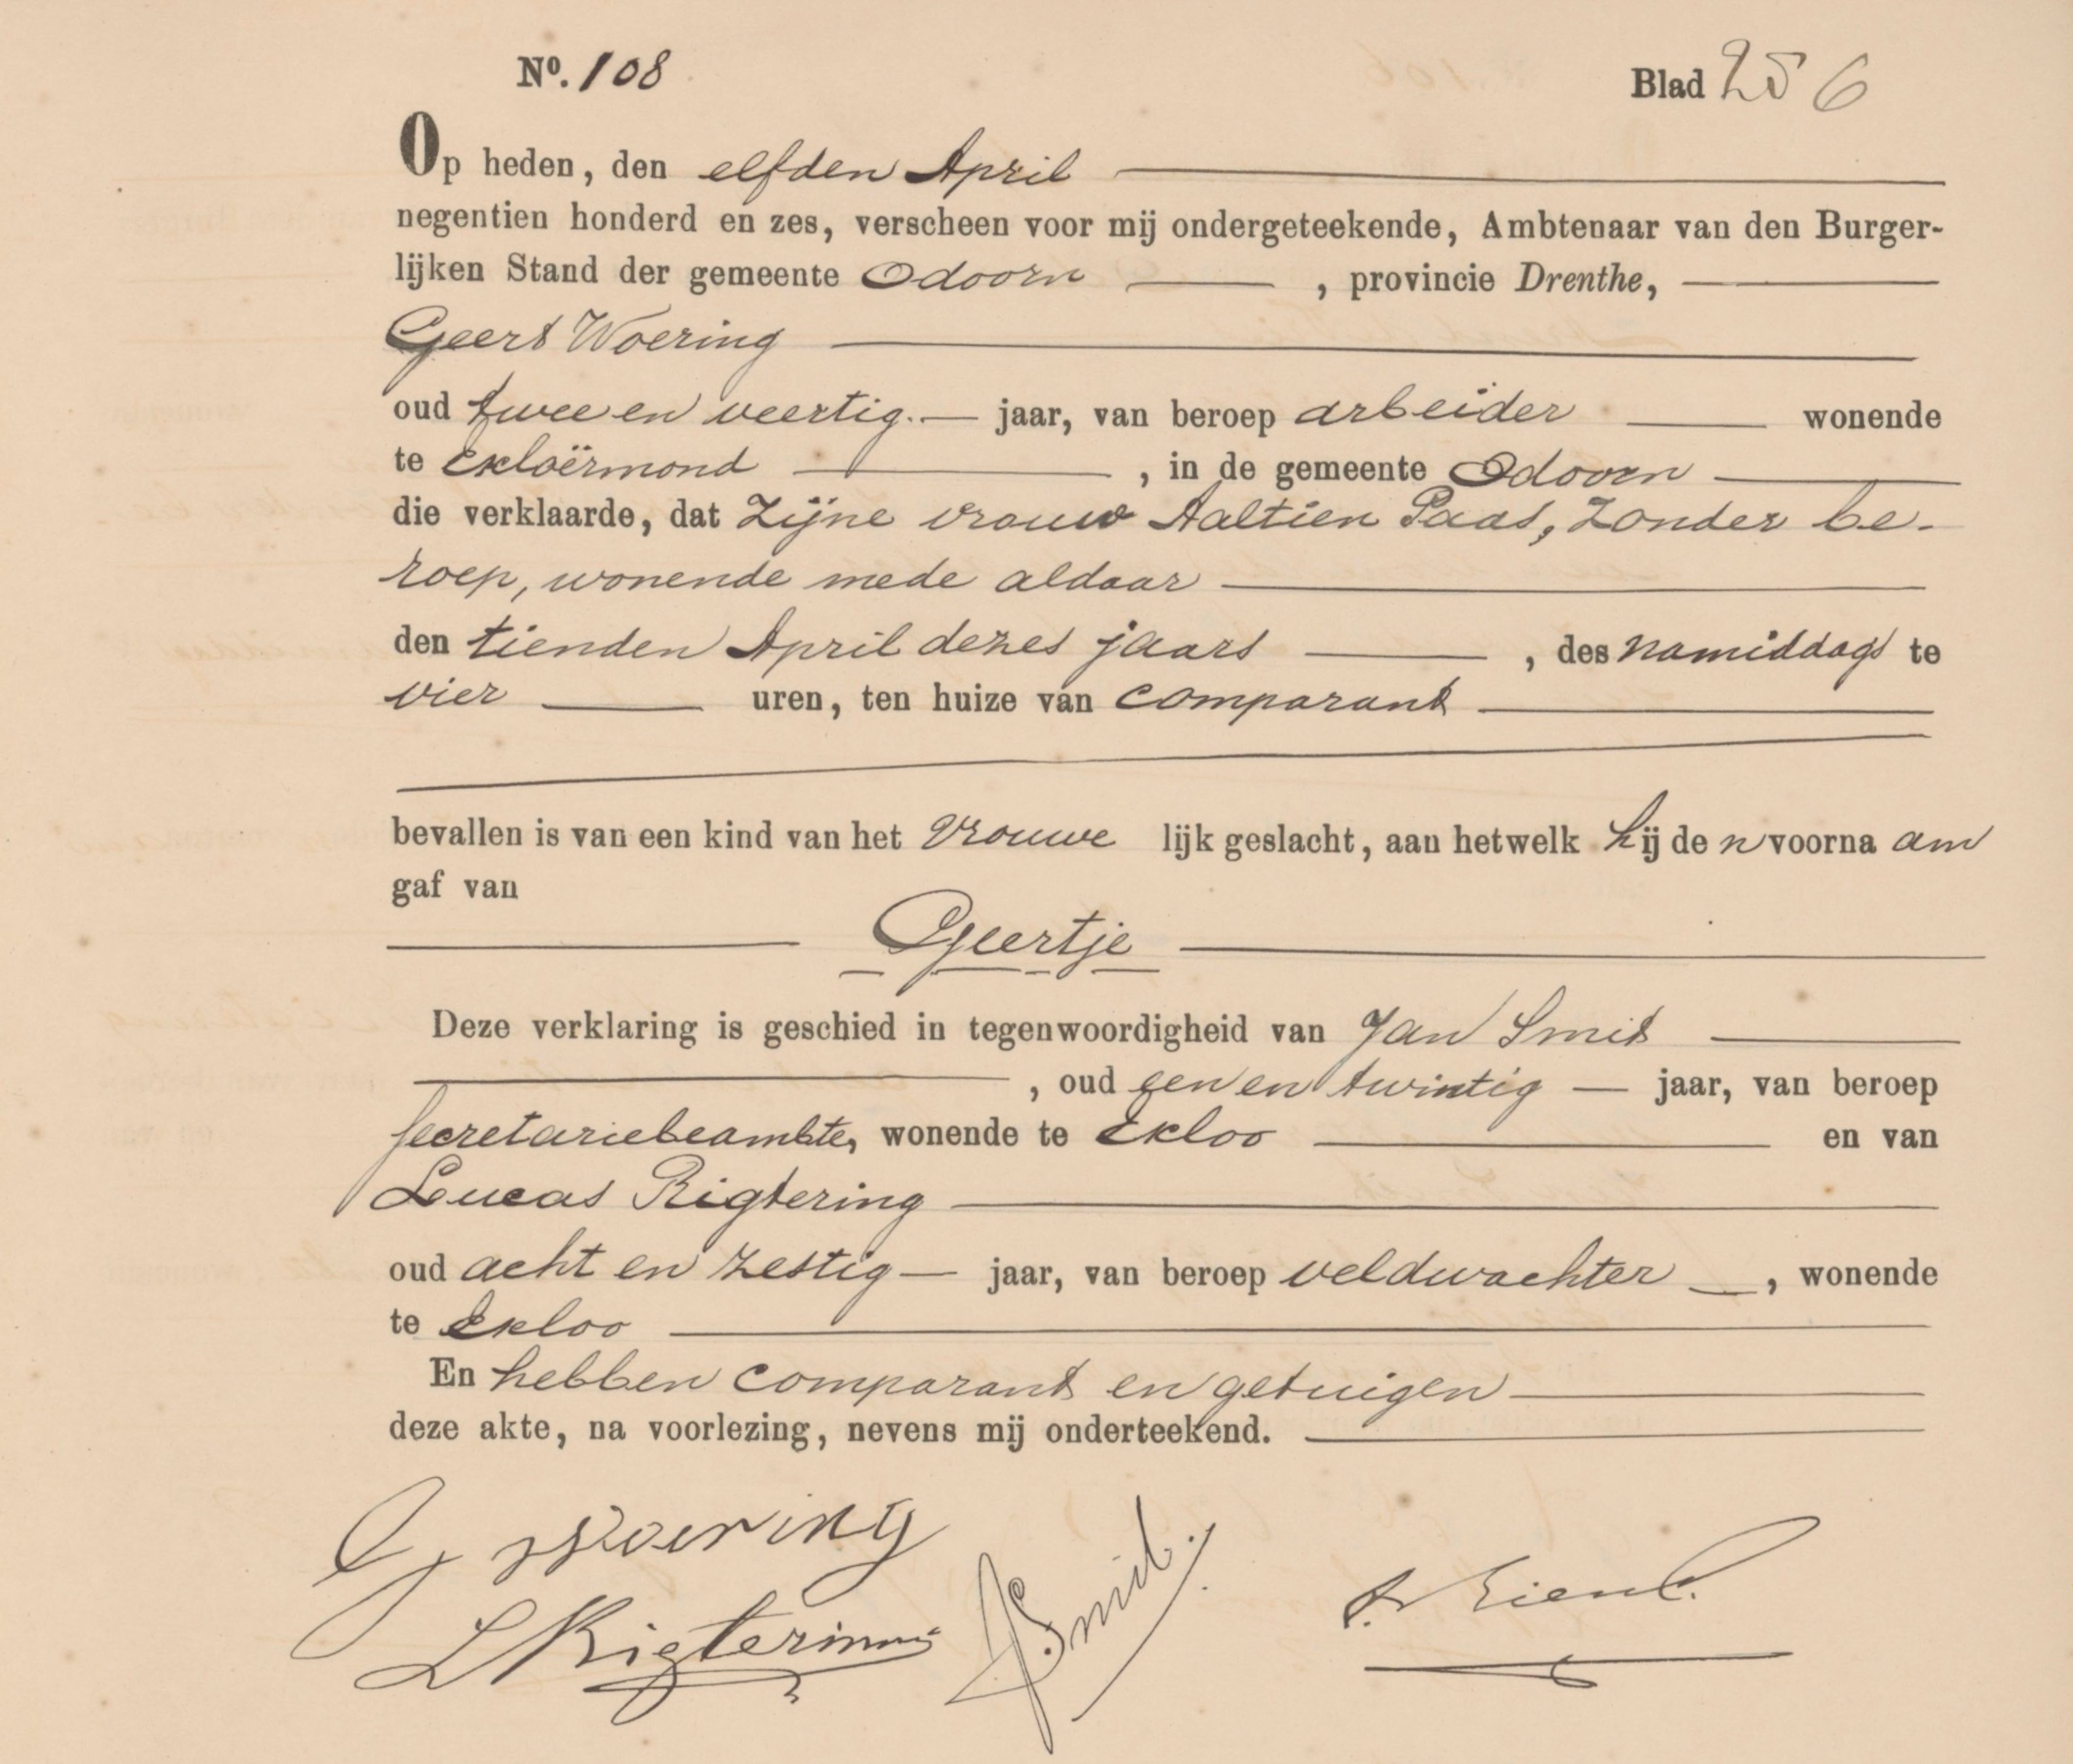 Nº. 108 Blad 256
Op heden, den elfden April
negentien honderd en zes, verscheen voor mij ondergeteekende, Ambtenaar van den Burger-
lijken Stand der gemeente Odoorn , provincie Drenthe,
Geert Woering
oud twee en veertig. jaar, van beroep arbeider wonende
te Exloërmond , in de gemeente Odoorn
die verklaarde, dat Zijne vrouw Aaltien Paas, zonder be-
roep, wonende mede aldaar
den tienden April dezes jaars , des namiddags te
vier uren, ten huize van comparant
bevallen is van een kind van het vrouwe lijk geslacht, aan hetwelk hij de n voorna am
gaf van
Geertje
Deze verklaring is geschied in tegenwoordigheid van Jan Smit
, oud een en twintig jaar, van beroep
secretariebeambte, wonende te Exloo en van
Lucas Rigtering
oud acht en zestig jaar, van beroep veldwachter , wonende
te Exloo
En hebben comparant en getuigen
deze akte, na voorlezing, nevens mij onderteekend.
G Woering
L Rigtering
J Smit.